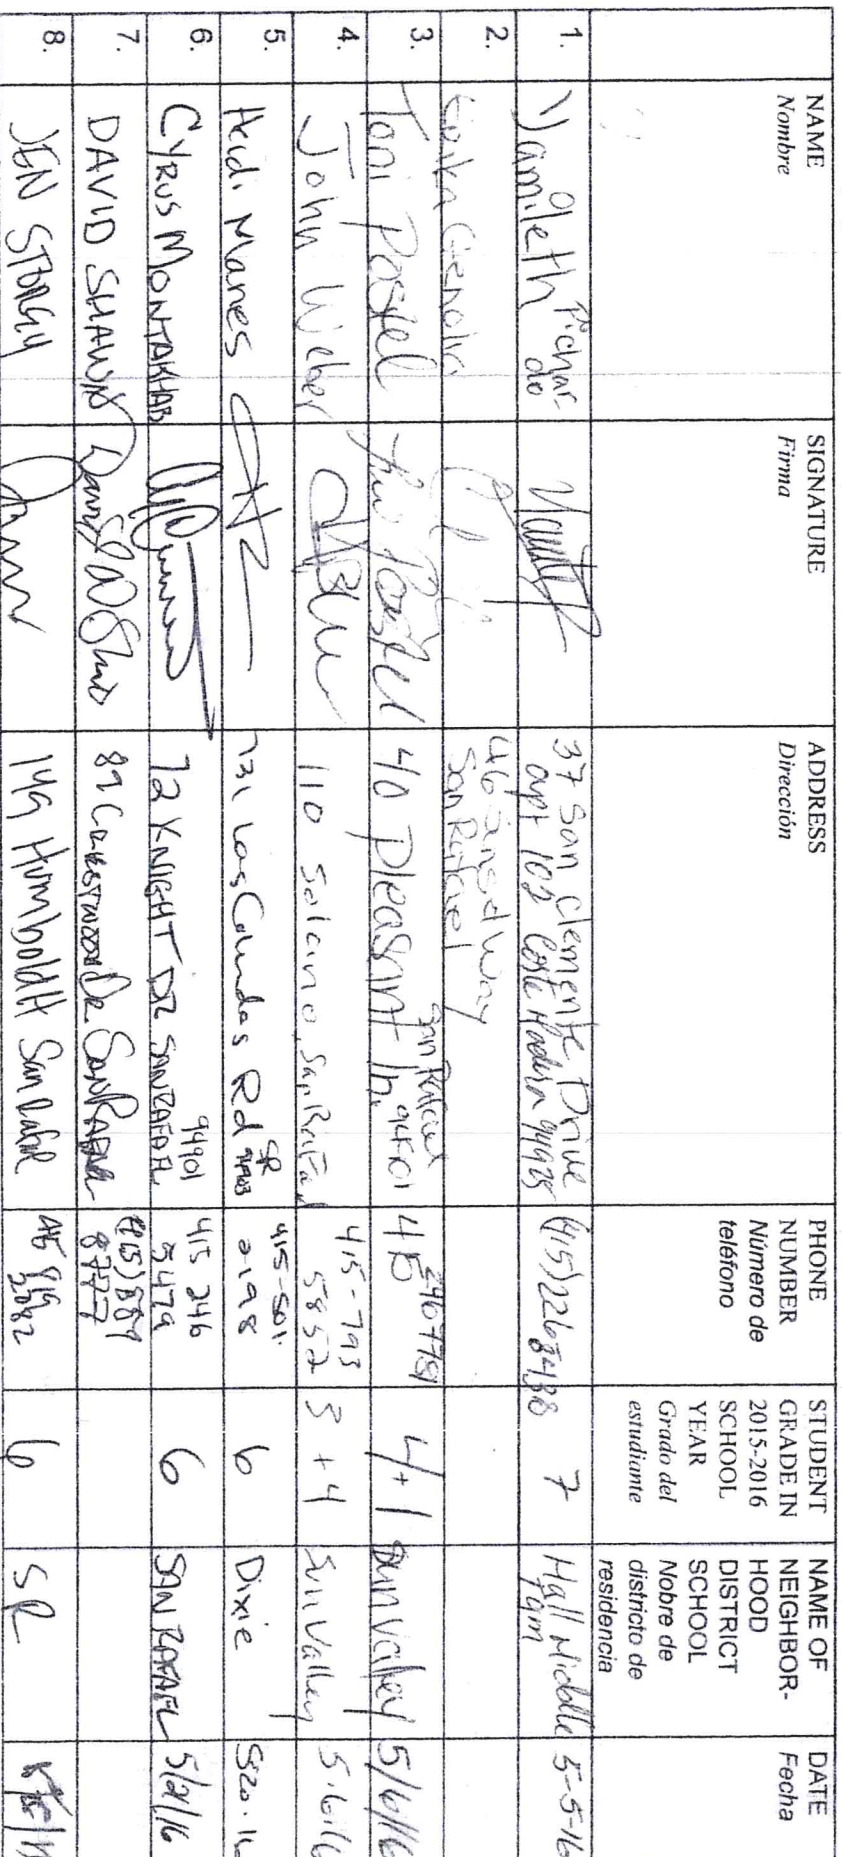 NAME
Nombre
SIGNATURE
Firma
ADDRESS
Dirección
PHONE
NUMBER
Número de
teléfono
STUDENT
GRADE IN
2015-2016
SCHOOL
YEAR
Grado del
estudiante
NAME OF
NEIGHBOR-
HOOD
DISTRICT
SCHOOL
Nobre de
districto de
residencia
DATE
Fecha
1.
Yamileth Pichar-
do
37 San Clemente Drive
apt 102 Corte Madera
(415)
7
Hall Middle
5-5-16
2.
46 Way
San Rafael
3.
Toni Postel
Toni Postel
40 Pleasant ln.
San Rafael
415
2467781
4+1
Sun Valley
5/6/16
4.
John Weber
110 Solano, San Rafael
415-793
5852
3+4
Sun Valley
5.6.16
5.
Heidi Manes
Rd SR
415-501-
2198
6
Dixie
520.16
6.
CYRUS MONTAKHAB
72 KNIGHT DR SAN RAFAEL
94901
415 246
5479
6
SAN RAFAEL
5/21/16
7.
DAVID SHAWN
CRESTWOOD DR. SAN RAFAEL
(415)
8777
8.
JEN
149 Humboldt San Rafael
6
SR